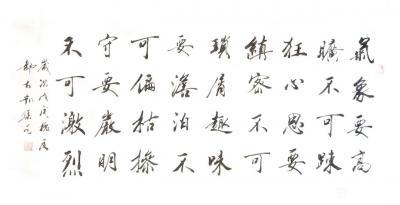 氣象要高
曠不可疎
狂心思要
縝密不可
瑣屑趣味
要澹泊不
可偏枯操
守要嚴明
不可激烈
歲次戊戌